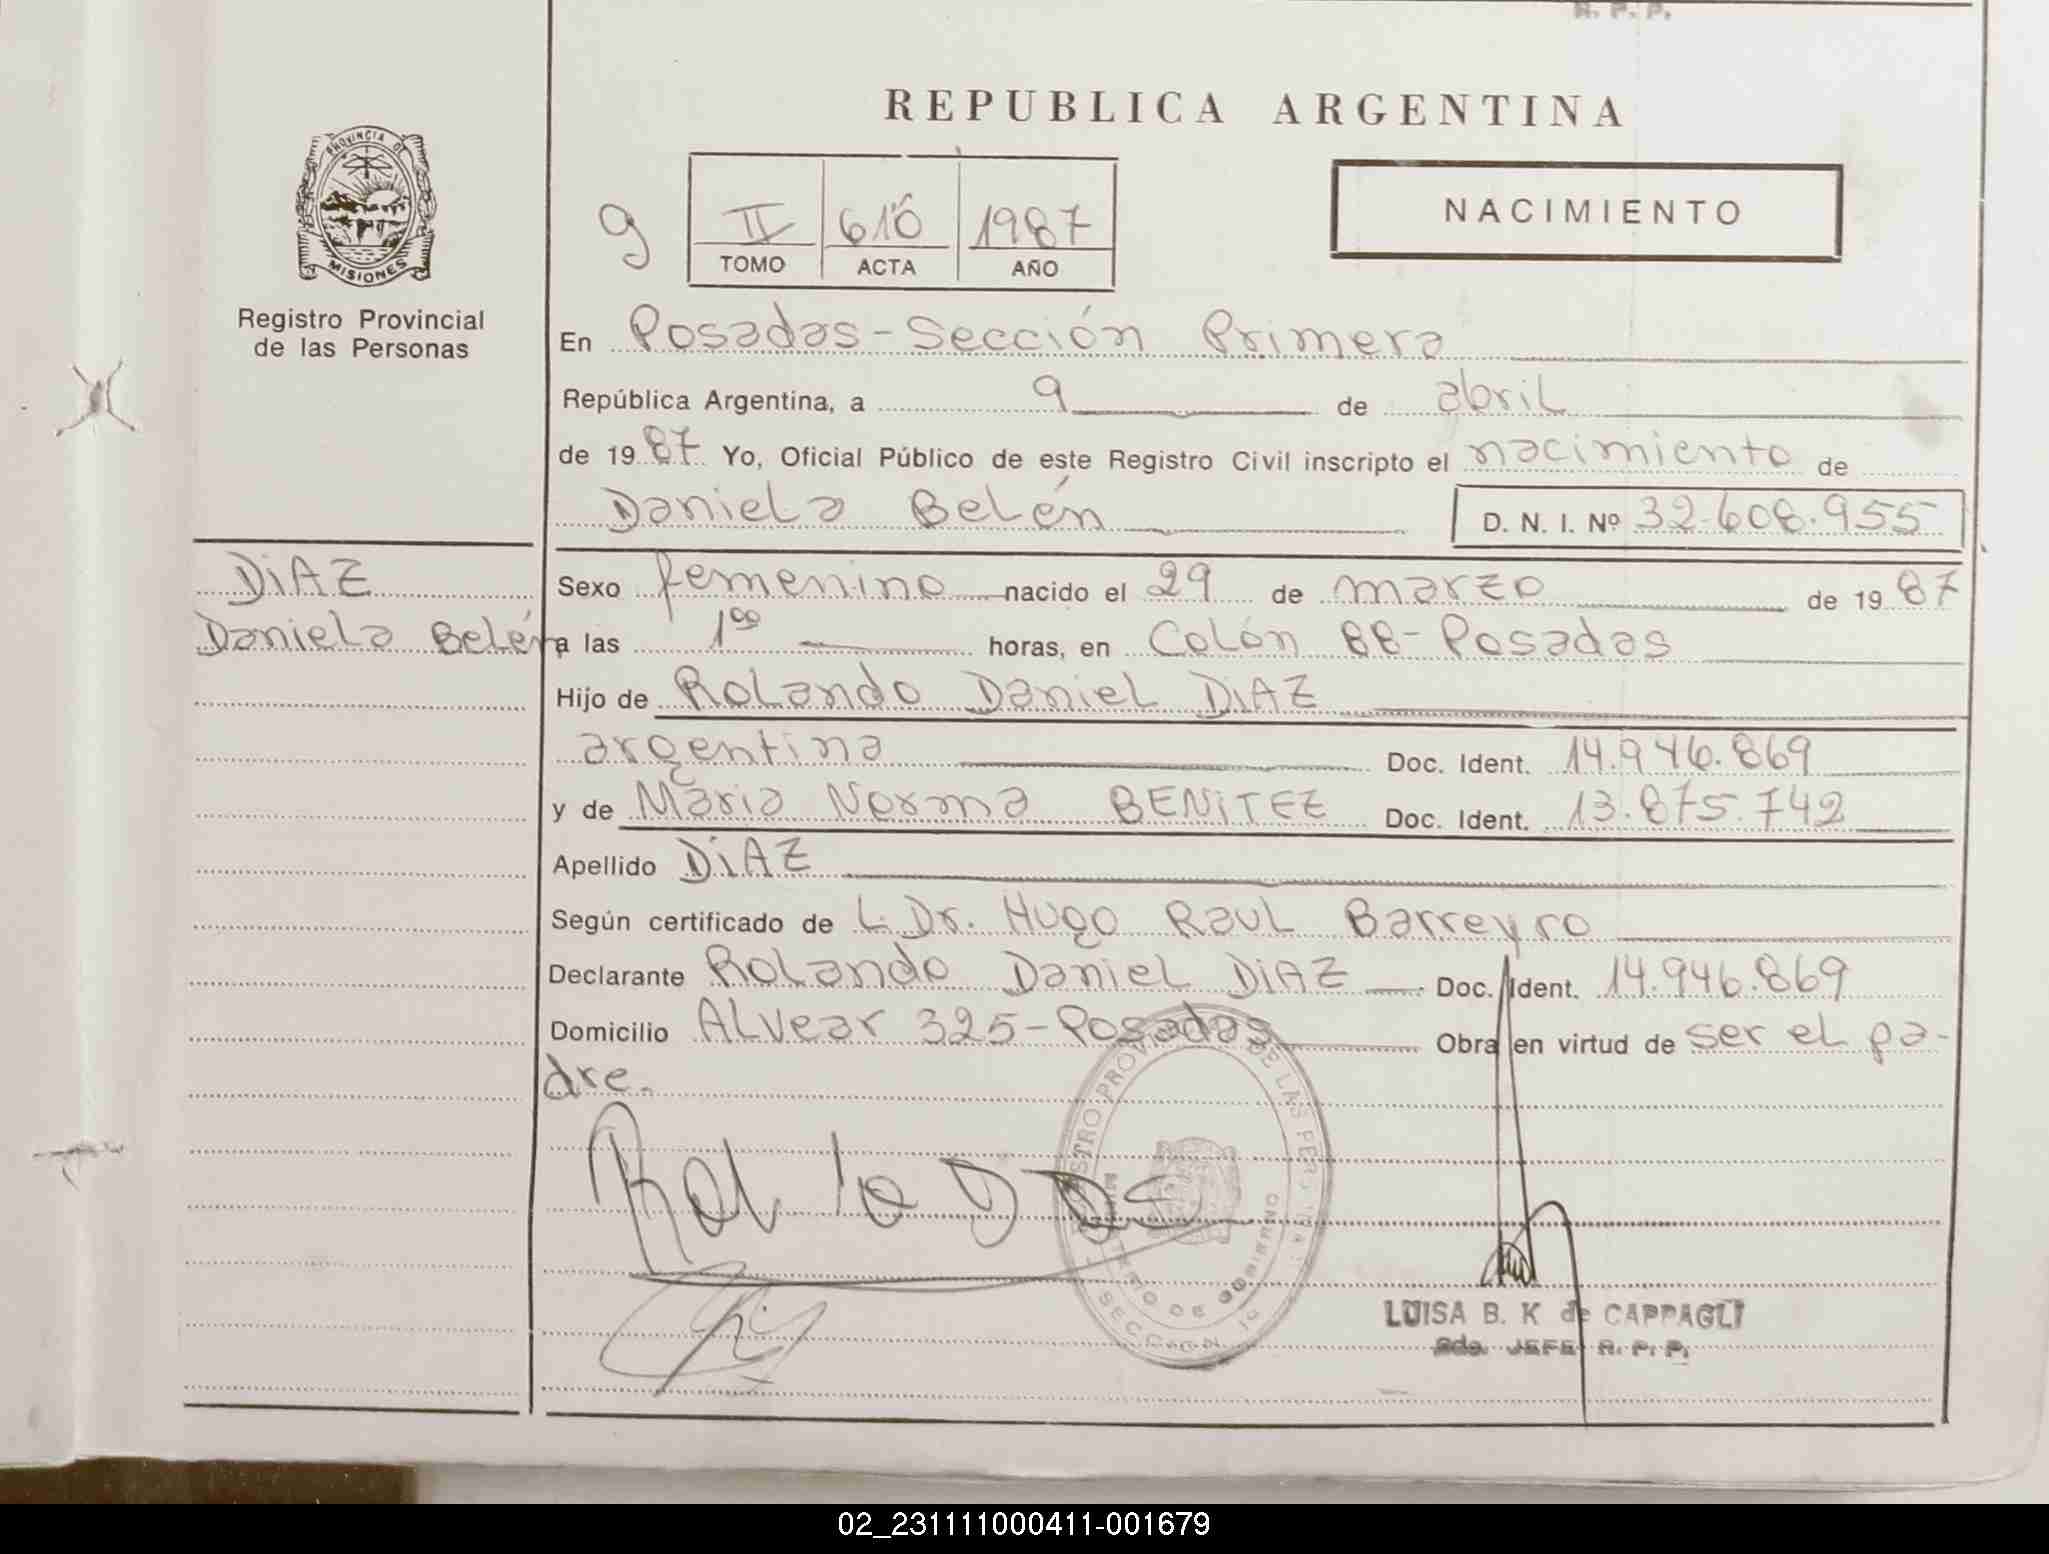 R. P. P.
REPUBLICA ARGENTINA
PROVINCIA D
MISIONES
Registro Provincial
de las Personas
NACIMIENTO
9
II 616 1987
TOMO ACTA AÑO
En Posadas-Sección Primera
República Argentina, a 9 de abril
de 1987 Yo, Oficial Público de este Registro Civil inscripto el nacimiento de
Daniela Belén D. N. I. Nº 32.608.955
DiAZ
Daniela Belén
Sexo femenino nacido el 29 de marzo de 1987
a las 1⁰⁰ horas, en Colón 88-Posadas
Hijo de Rolando Daniel DiAZ
argentina Doc. Ident. 14.946.869
y de Maria Norma BENiTEZ Doc. Ident. 13.875.742
Apellido DiAZ
Según certificado de L. Dr. Hugo Raul Barreyro
Declarante Rolando Daniel DiAZ Doc. Ident. 14.946.869
Domicilio ALvear 325-Posadas Obra en virtud de ser el pa-
dre.
REGISTRO PROVINCIAL DE LAS PERSONAS
MINISTERIO DE GOBIERNO
SECCION 1º
LUISA B. K de CAPPAGLI
JEFE R. P. P.
02_231111000411-001679